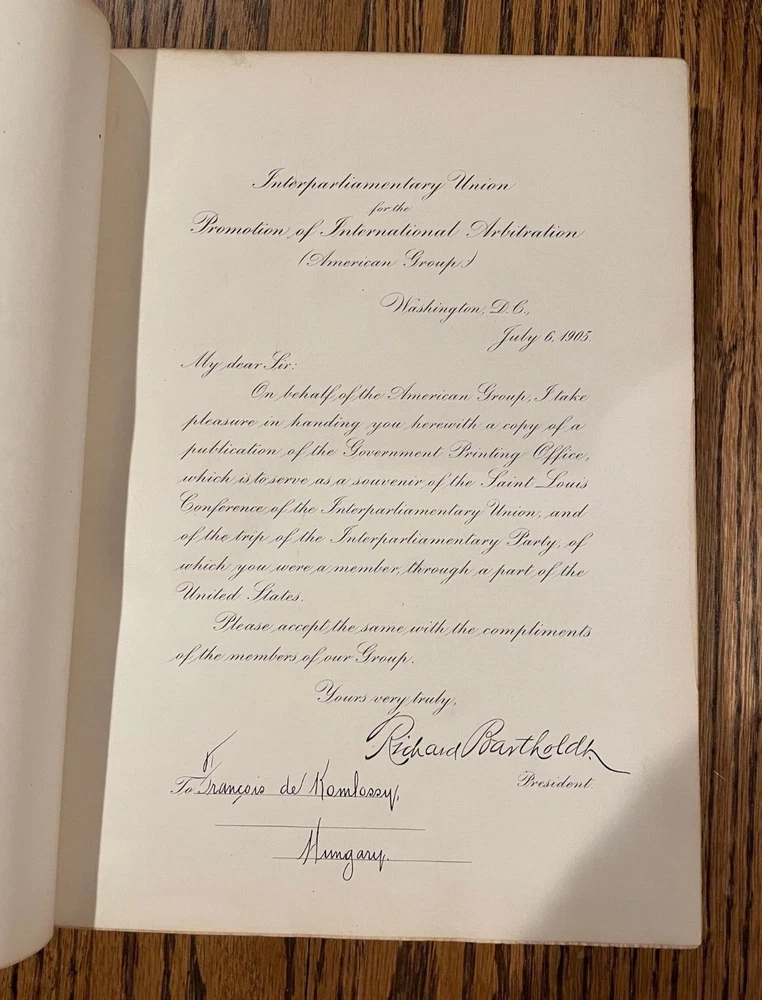 Interparliamentary Union
for the
Promotion of International Arbitration
(American Group)
Washington, D.C.,
July 6, 1905.
My dear Sir:
On behalf of the American Group, I take
pleasure in handing you herewith a copy of a
publication of the Government Printing Office,
which is to serve as a souvenir of the Saint Louis
Conference of the Interparliamentary Union, and
of the trip of the Interparliamentary Party, of
which you were a member, through a part of the
United States.
Please accept the same with the compliments
of the members of our Group.
Yours very truly,
Richard Bartholdt
President.
To François de Komlossy,
Hungary.